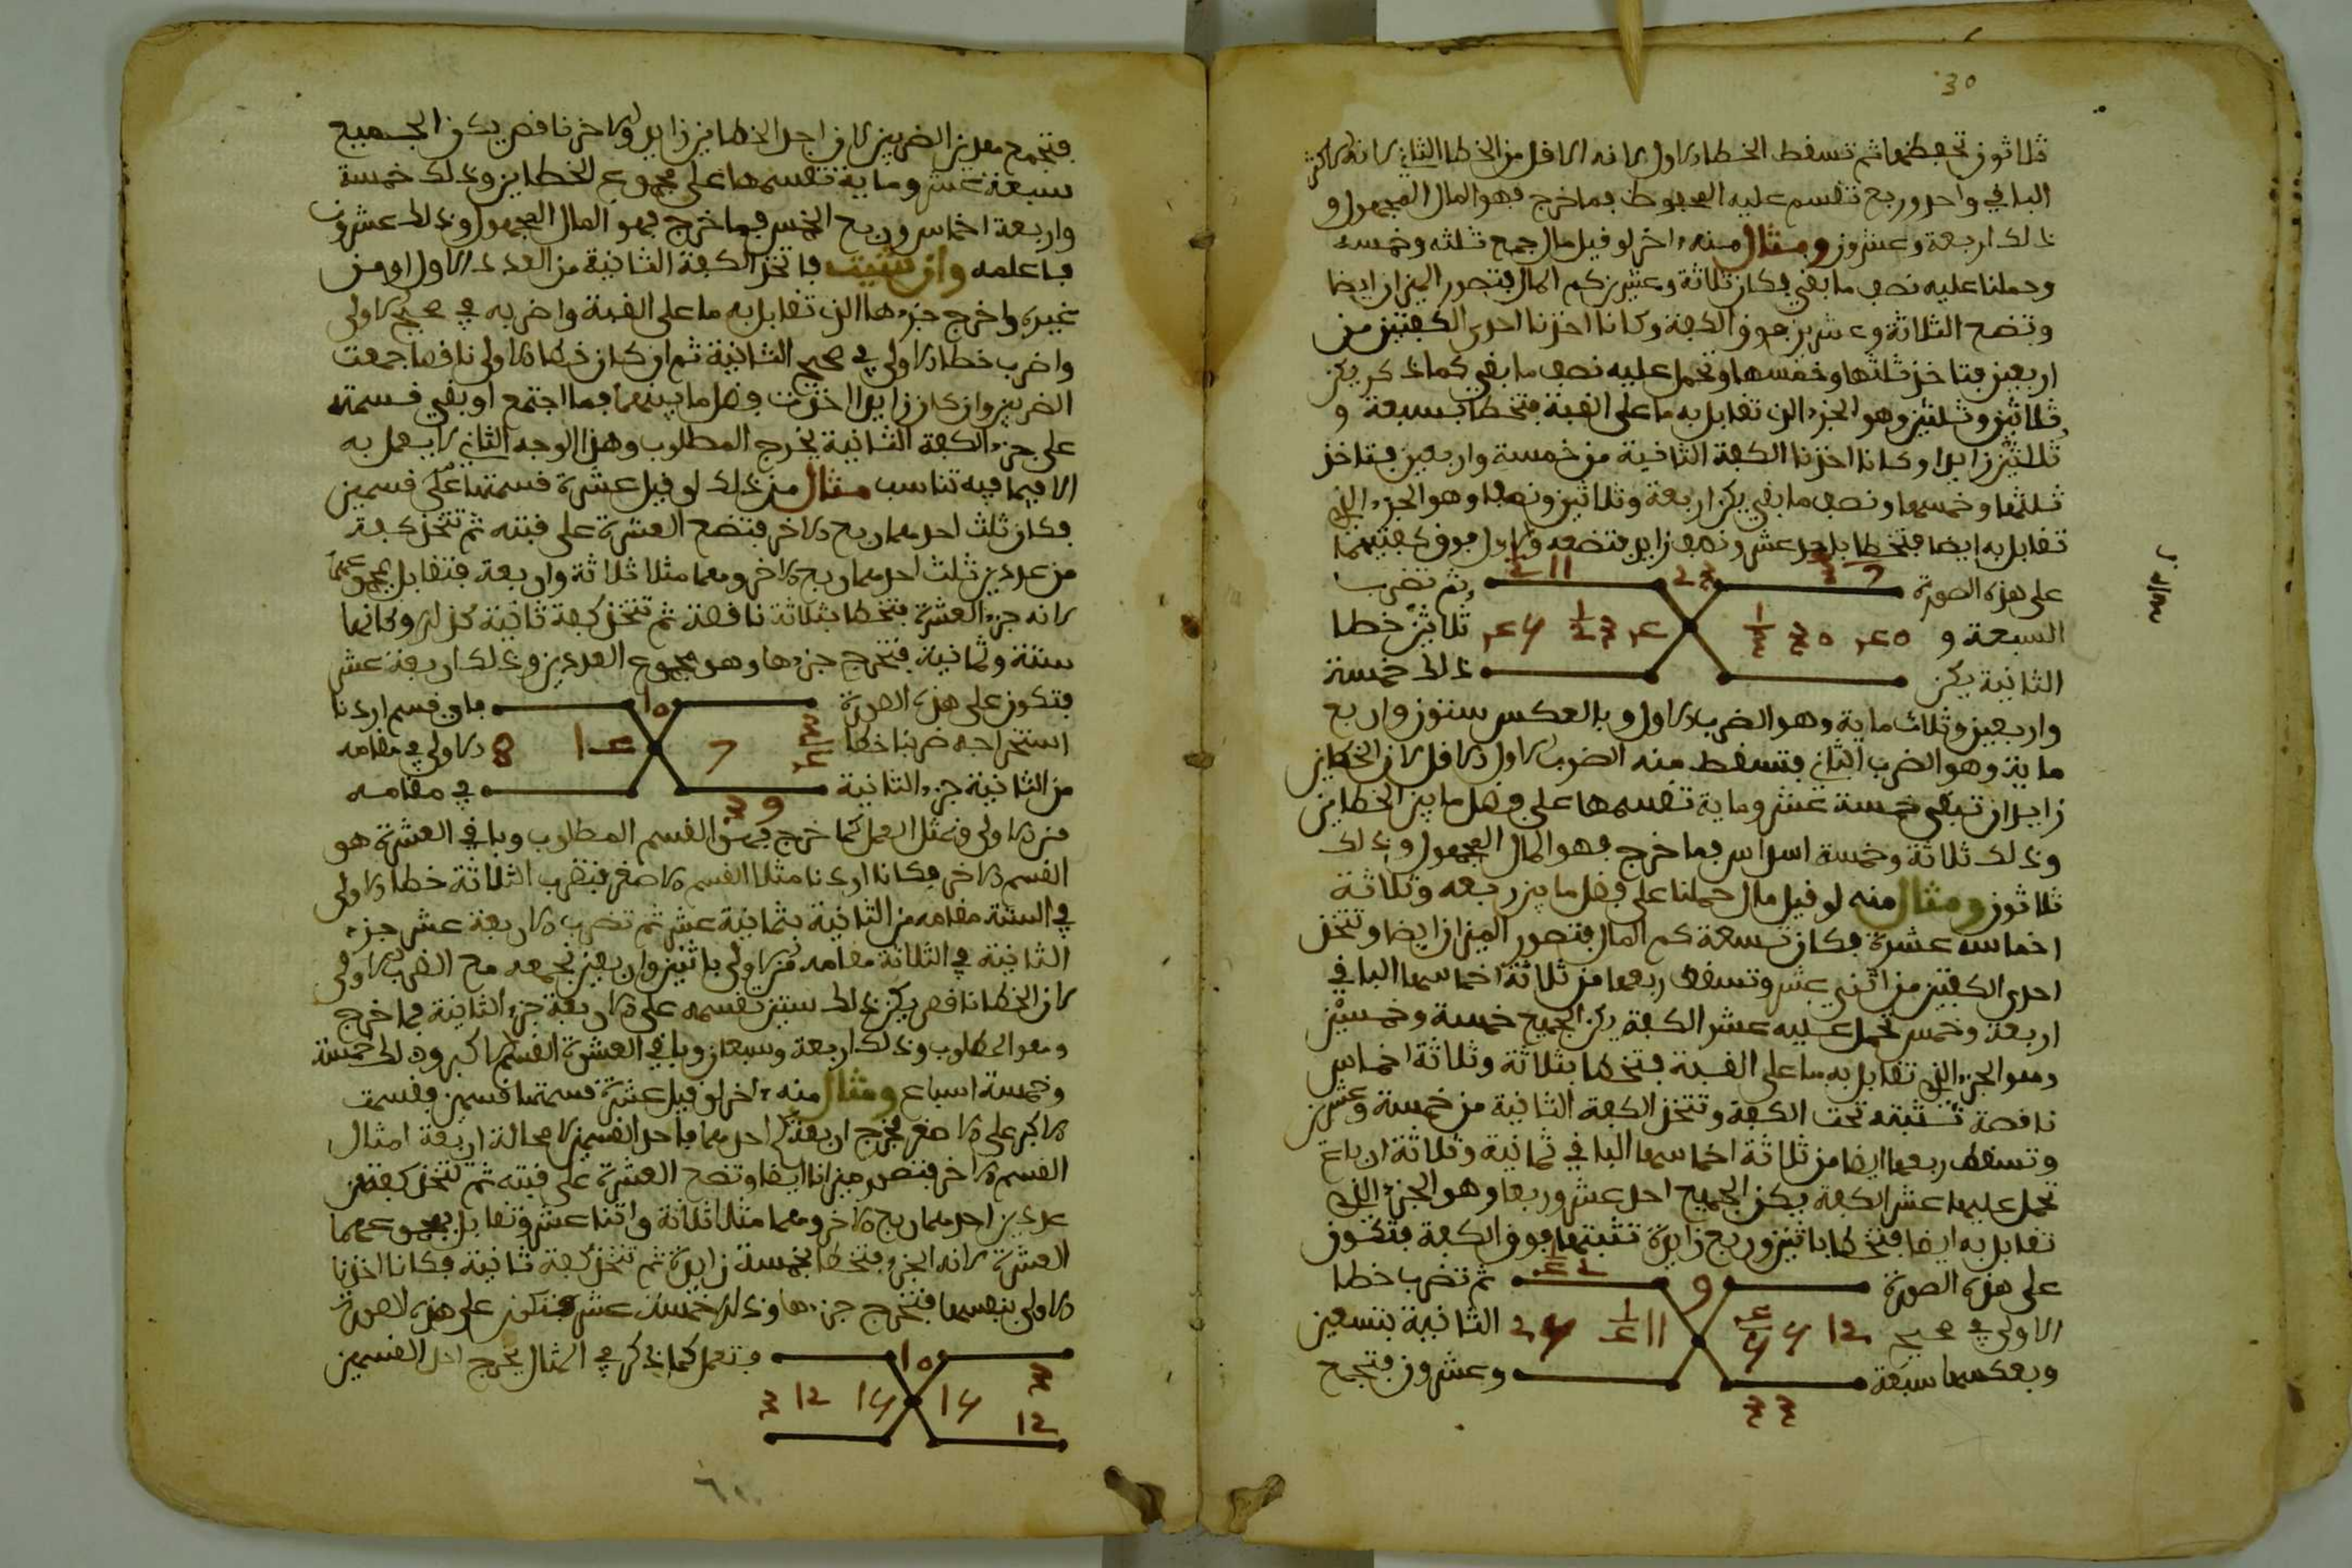 30
ثلاثون تحفظها ثم تسقط الخطا الاول لانه الاقل من الخطا الثاني لانه الاكثر
الباقي واحد وربع تقسم عليه المحفوظ فما خرج فهو المال المجهول و
ذلك اربعة وعشرون ومثال منه اخر لو قيل مال جمع ثلثه وخمسه
وحملنا عليه نصف ما بقي فكان ثلاثة وعشرين كم المال فتصور الميزان ايضا
وتضع الثلاثة وعشرين فوق الكفة وكانا اخذنا احدى الكفتين من
اربعين فتاخذ ثلثها وخمسها وتحمل عليه نصف ما بقي كما ذكر يكن
ثلاثين وثلثين وهو الجزء الذي تقابل به ما على القبة فتخطا بسبعة و
ثلثين زايدا وكانا اخذنا الكفة الثانية من خمسة واربعين فتاخذ
ثلثها وخمسها ونصف ما بقي يكن اربعة وثلاثين ونصفا وهو الجزء الذي
تقابل به ايضا فتخطا باحد عشر ونصف زايد فتضعه والاول فوق كفتيهما
على هذه الصورة ثم تضرب
السبعة و ثلاثين خطا
الثانية يكن ذلك خمسة
واربعين وثلاث ماية وهو الضرب الاول وبالعكس ستون واربع
ماية وهو الضرب الثاني فتسقط منه الضرب الاول الاقل لان الخطاين
زايدان تبقى خمسة عشر وماية تقسمها على فضل ما بين الخطاين
وذلك ثلاثة وخمسة اسداس فما خرج فهو المال المجهول وذلك
ثلاثون ومثال منه لو قيل مال حملنا على فضل ما بين ربعه وثلاثة
اخماسه عشرة فكان تسعة كم المال فتصور الميزان ايضا وتتخذ
احدى الكفتين من اثني عشر وتسقط ربعها من ثلاثة اخماسها الباقي
اربعة وخمس تحمل عليه عشر الكفة يكن الجميع خمسة وخمسين
وهو الجزء الذي تقابل به ما على القبة فتخطا بثلاثة وثلاثة اخماس
ناقصة تثبته تحت الكفة وتتخذ الكفة الثانية من خمسة وعشرين
وتسقط ربعها ايضا من ثلاثة اخماسها الباقي ثمانية وثلاثة ارباع
تحمل عليها عشر الكفة يكن الجميع احد عشر وربعا وهو الجزء الذي
تقابل به ايضا فتخطا باثنين وربع زايدة تثبتها فوق الكفة فتكون
على هذه الصورة ثم تضرب خطا
الاولى في صحيح الثانية بتسعين
وبعكسها سبعة وعشرون فتجمع
فتجمع هذين الضربين لان احد الخطاين زايد والاخر ناقص يكن الجميع
سبعة عشر وماية تقسمها على مجموع الخطاين وذلك خمسة
واربعة اخماس وربع الخمس فما خرج فهو المال المجهول وذلك عشرون
فاعلمه وان شئت فاتخذ الكفة الثانية من العدد الاول او من
غيره واخرج جزءها الذي تقابل به ما على القبة واضربه في صحيح الاولى
واضرب خطا الاولى في صحيح الثانية ثم ان كان خطا الاولى ناقصا جمعت
الضربين وان كان زايدا اخذت فضل ما بينهما فما اجتمع او بقي قسمته
على جزء الكفة الثانية يخرج المطلوب وهذا الوجه الثاني لا يعمل به
الا فيما فيه تناسب مثال من ذلك لو قيل عشرة قسمتها على قسمين
فكان ثلث احدهما ربع الاخر فتضع العشرة على قبته ثم تتخذ كفة
من عددين ثلث احدهما ربع الاخر وهما مثلا ثلاثة واربعة فتقابل بمجموعهما
لانه جزء العشرة فتخطا بثلاثة ناقصة ثم تتخذ كفة ثانية كذلك وكانها
ستة وثمانية فتخرج جزءها وهو مجموع العددين وذلك اربعة عشر
فتكون على هذه الصورة فاي قسم اردنا
استخراجه ضربنا خطا الاولى في مقامه
من الثانية جزء الثانية في مقامه
من الاولى فنمثل العمل كما خرج فهو القسم المطلوب وباقي العشرة هو
القسم الاخر فكانا اردنا مثلا القسم الاصغر فنضرب الثلاثة خطا الاولى
في الستة مقامه من الثانية بثمانية عشر ثم تضرب الاربعة عشر جزء
الثانية في الثلاثة مقامه من الاولى باثنين واربعين تجمعه مع الضرب الاول
لان الخطا ناقص يكن ذلك ستين تقسمه على الاربعة جزء الثانية فما خرج
فهو المطلوب وذلك اربعة وسبعان وباقي العشرة القسم الاكبر وذلك خمسة
وخمسة اسباع ومثال منه اخر لو قيل عشرة قسمتها قسمين وقسمت
الاكبر على الاصغر يخرج اربعة احدهما فاحد القسمين لا محالة اربعة امثال
القسم الاخر فتصور ميزانا ايضا وتضع العشرة على قبته ثم تتخذ كفة من
عددين احدهما ربع الاخر وهما مثلا ثلاثة واثنا عشر وتقابل بمجموعهما
العشرة لانه الجزء فتخطا بخمسة زايدة ثم تتخذ كفة ثانية فكانا اخذنا
الاولى بنفسها فتخرج جزءها وذلك خمسة عشر فتكون على هذه الصورة
وتعمل كما ذكر في المثال يخرج احد القسمين